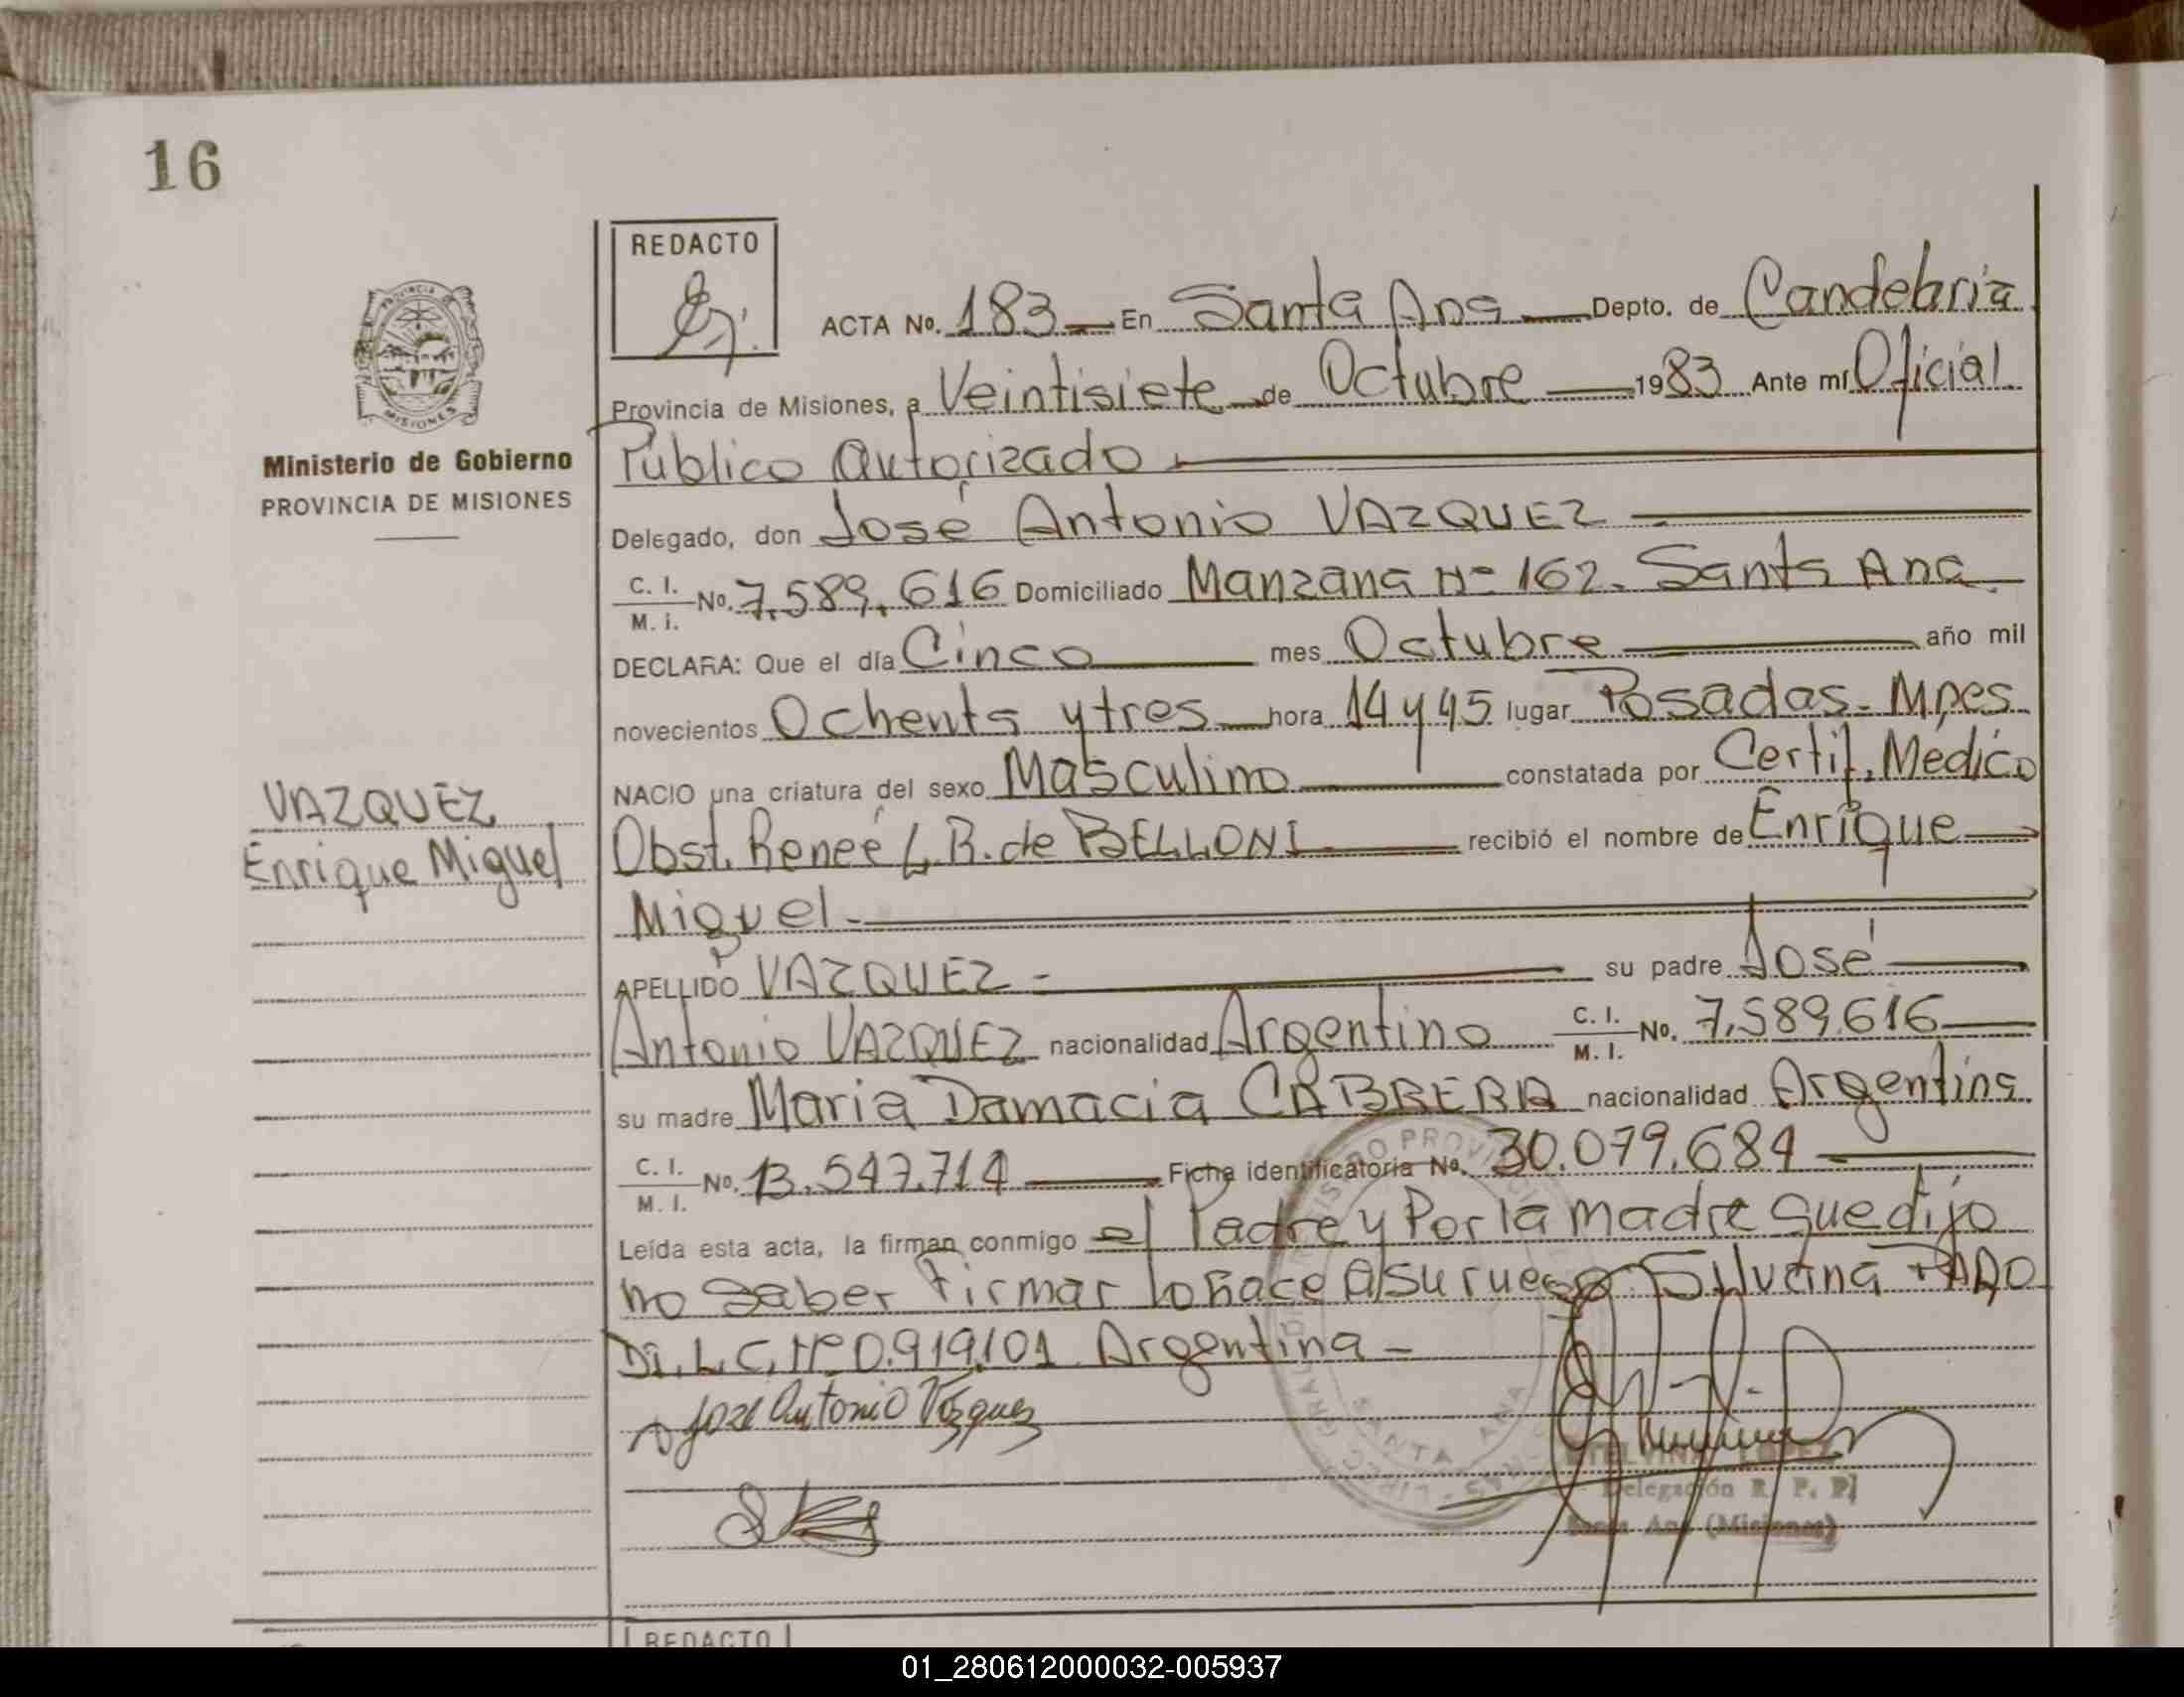 16
REDACTO
PROVINCIA DE
MISIONES
Ministerio de Gobierno
PROVINCIA DE MISIONES
VAZQUEZ
Enrique Miguel
ACTA No. 183 En Santa Ana Depto. de Candelaria
Provincia de Misiones, a Veintisiete de Octubre 1983 Ante mí Oficial
Público autorizado
Delegado, don José Antonio VAZQUEZ
C. I. M. i. No. 7.589.616 Domiciliado Manzana Nº 162. Santa Ana
DECLARA: Que el día Cinco mes Octubre año mil
novecientos Ochenta y tres hora 14 y 45 lugar Posadas. Mnes.
NACIO una criatura del sexo Masculino constatada por Certif. Medico
Obst. Reneé L. B. de BELLONI recibió el nombre de Enrique
Miguel
APELLIDO VAZQUEZ su padre José
Antonio VAZQUEZ nacionalidad Argentino C. I. M. I. No. 7.589.616
su madre Maria Damacia CABRERA nacionalidad Argentina
C. I. M. I. No. 13.547.714 Ficha identificatoria No. 30.079.684
Leída esta acta, la firman conmigo el Padre y Por la madre que dijo
no saber Firmar lo hace a su ruego Silvana
L.C. Nº 0.919.101 Argentina
Jose Antonio Vázquez
SANTA ANA
Delegación R. P. P.
Santa Ana (Misiones)
REDACTO
01_280612000032-005937